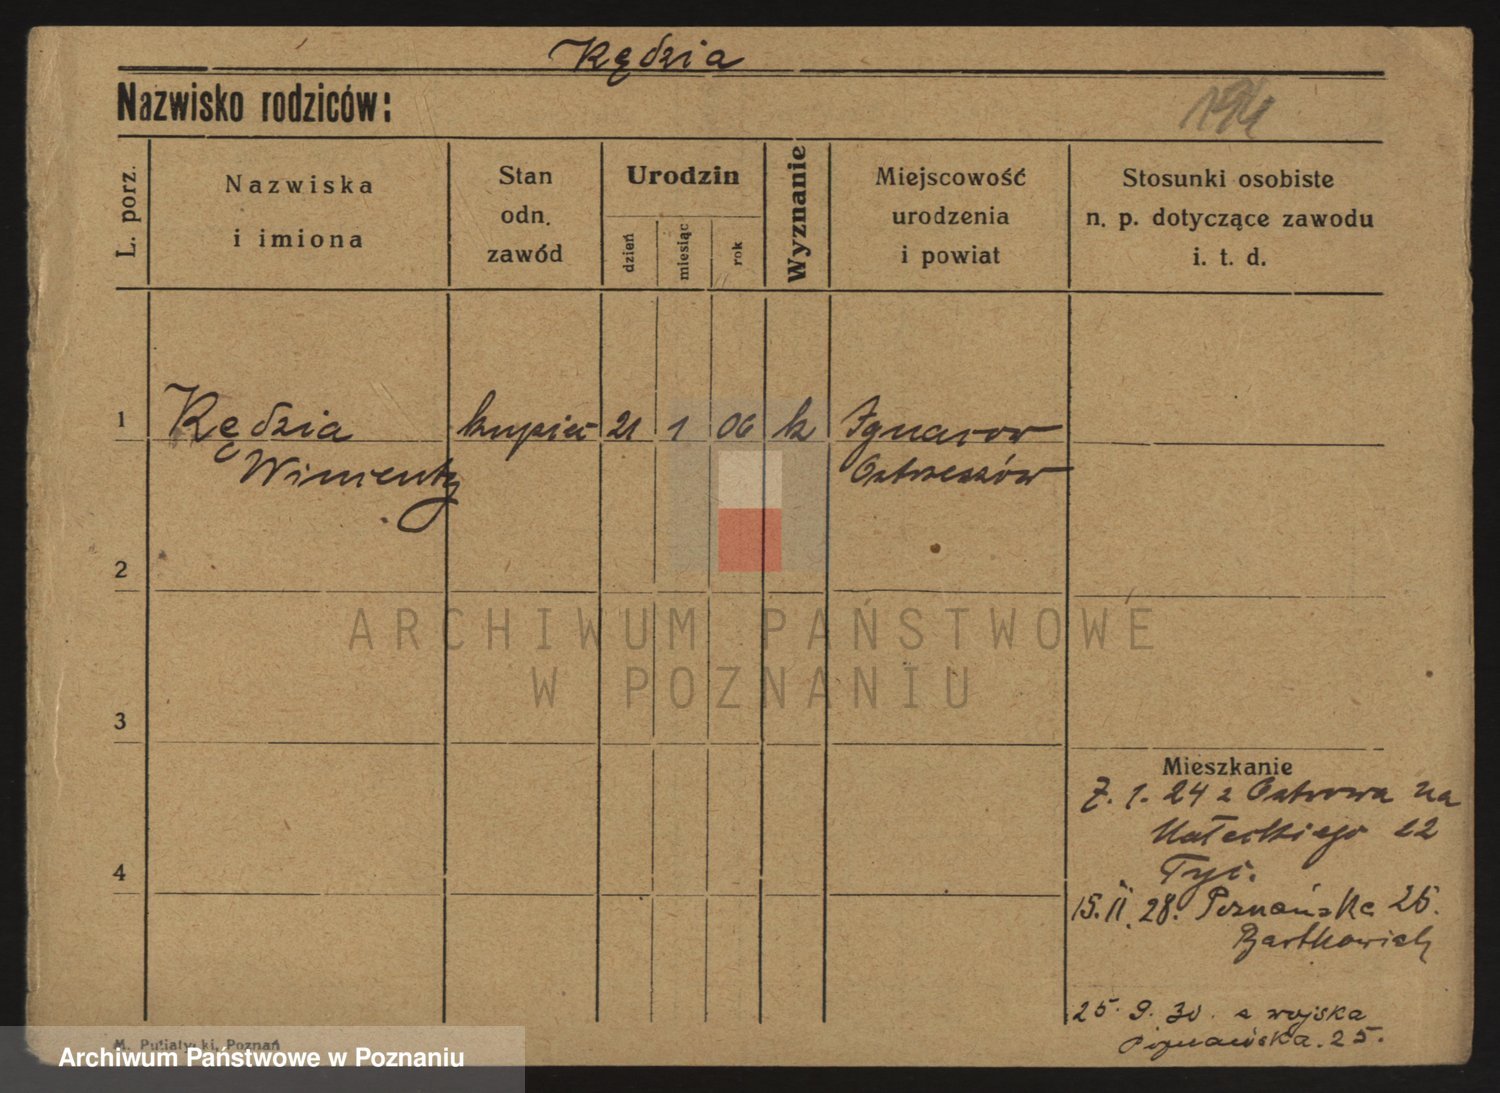 Kędzia
Nazwisko rodziców:
194
L. porz.
Nazwiska
i imiona
Stan
odn.
zawód
Urodzin
dzień
miesiąc
rok
Wyznanie
Miejscowość
urodzenia
i powiat
Stosunki osobiste
n. p. dotyczące zawodu
i. t. d.
1 Kędzia kupiec 21 1 06 k Ignacow
Wincenty Ostrzeszów
2
ARCHIWUM PAŃSTWOWE
W POZNANIU
3
Mieszkanie
7. 1. 24 z Ostrowa na
Małeckiego 12
4
15. II. 28. Poznańska 25.
Bartkowiak
25. 9. 30. z wojska
Poznańska. 25.
M. Putiatycki, Poznań
Archiwum Państwowe w Poznaniu